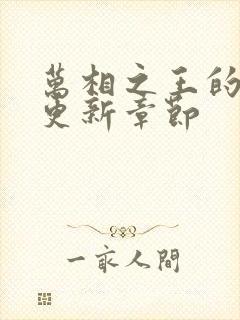 萬相之王的
更新章節
一衆人間